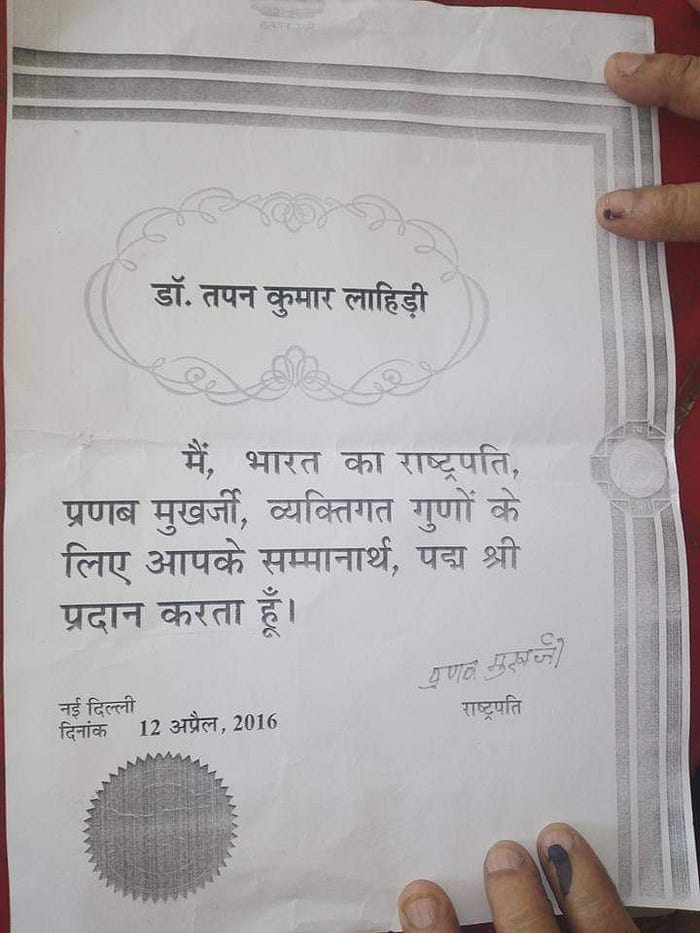 डॉ. तपन कुमार लाहिड़ी
मैं, भारत का राष्ट्रपति,
प्रणब मुखर्जी, व्यक्तिगत गुणों के
लिए आपके सम्मानार्थ, पद्म श्री
प्रदान करता हूँ।
प्रणव मुखर्जी
राष्ट्रपति
नई दिल्ली
दिनांक 12 अप्रैल, 2016